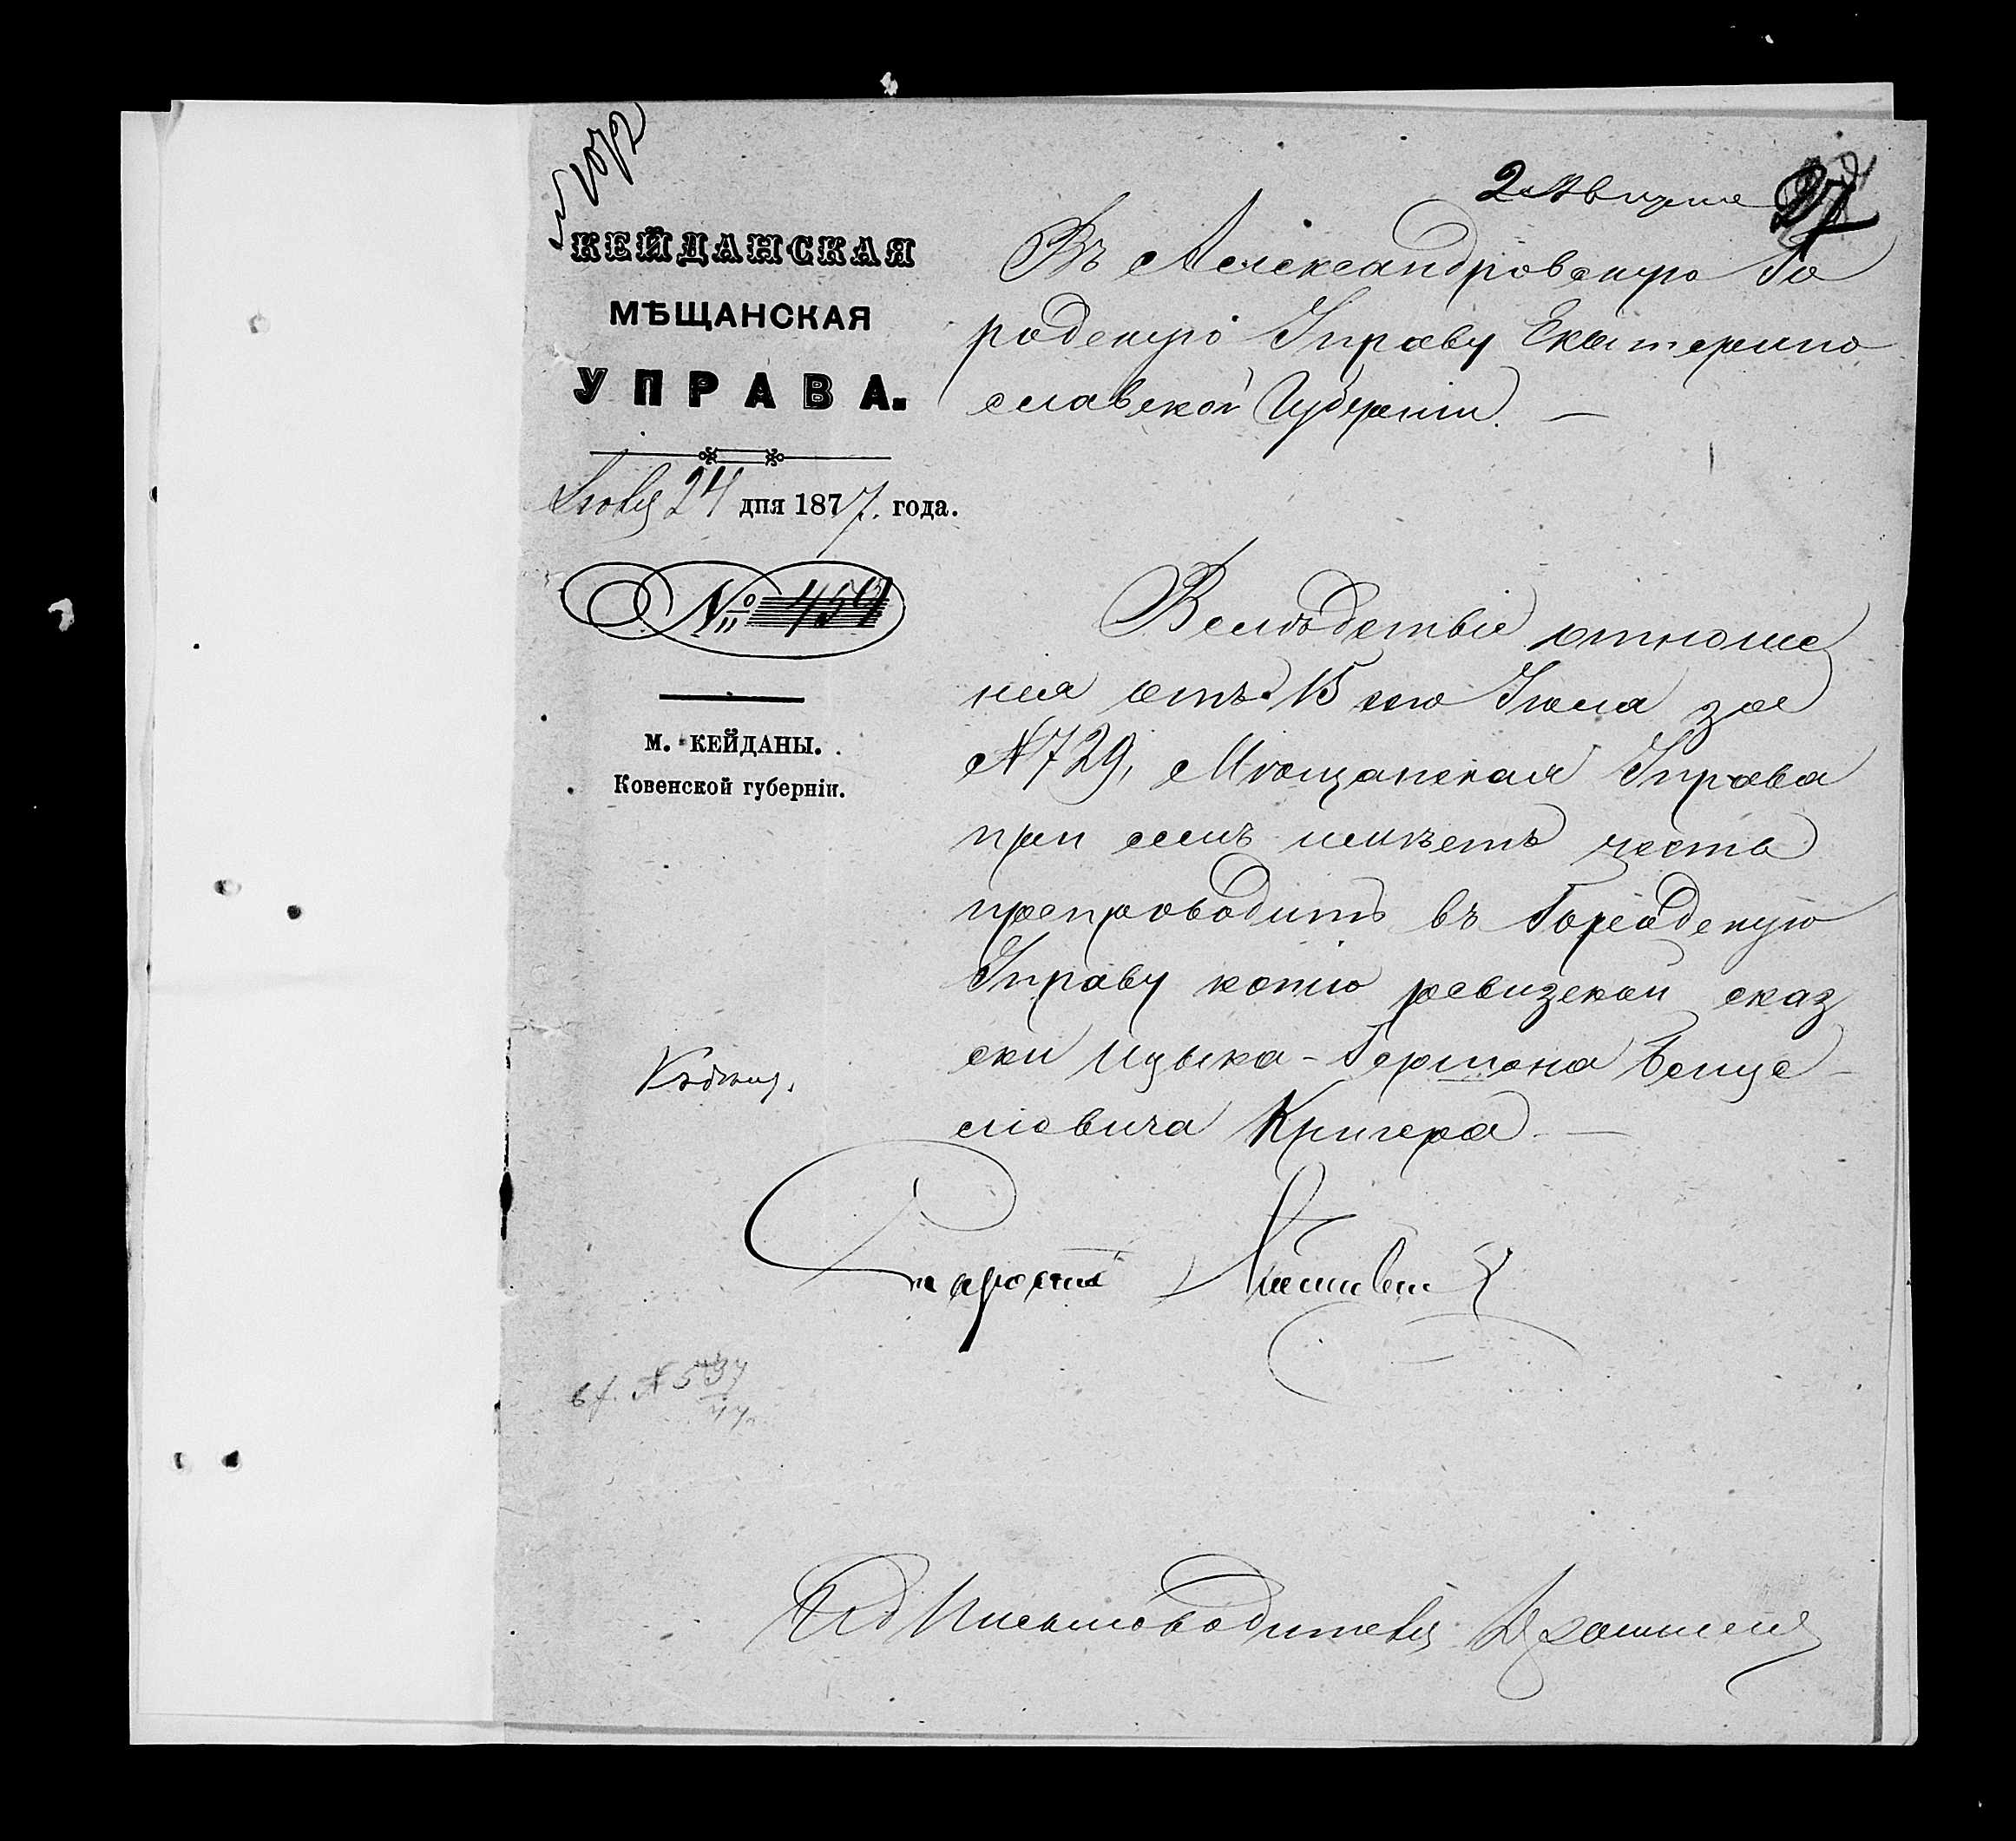 2 Августа
27
КЕЙДАНСКАЯ
МѢЩАНСКАЯ
УПРАВА.
24 дня 1877. года.
№ 459
м. КЕЙДАНЫ.
Ковенской губерніи.
Въ Александровскую Го
родскую Управу Екатерино
славской Губерніи. —
Вслѣдствіе отноше
нія отъ 15 сего Іюля за
№ 729, Мѣщанская Управа
при семъ имѣетъ честь
препроводить въ Городскую
Управу копію ревизской сказ
ски Ицыка-Гершона Бенце
ловича Кригера. —
Къ дѣлу.
Староста
вх. № 534
Письмоводителя